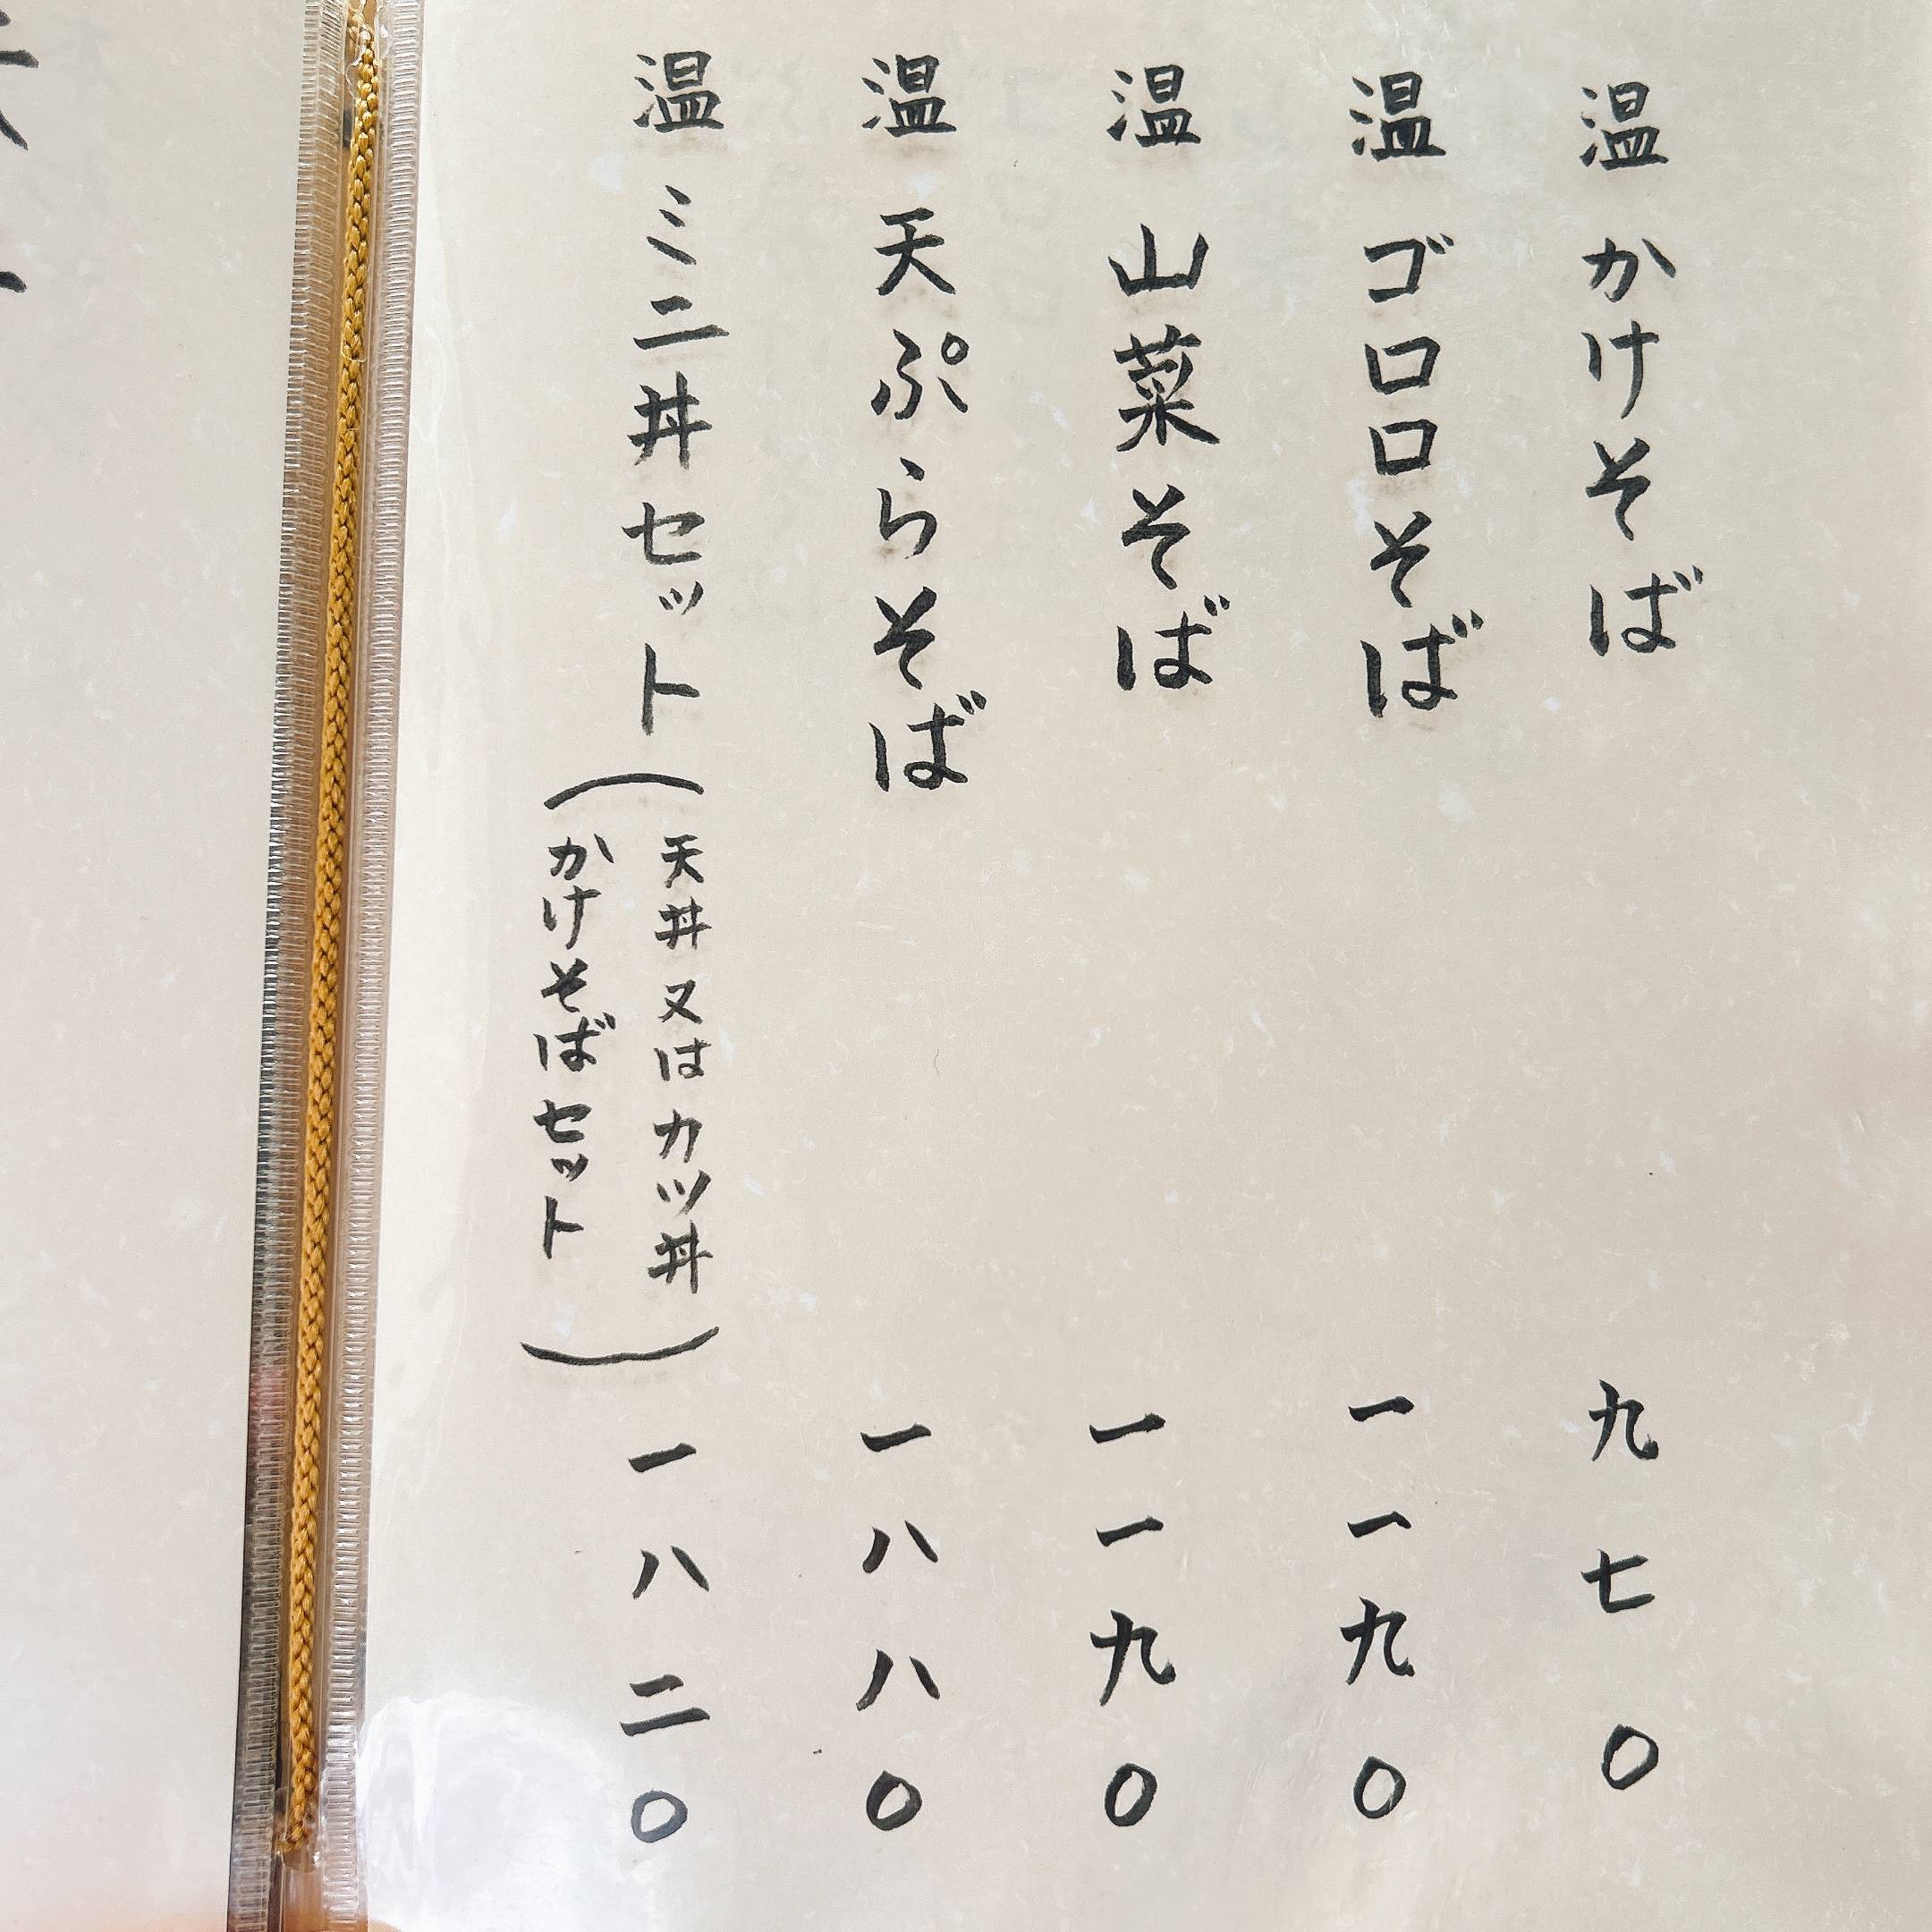 温 かけそば 九七〇
温 ゴロロそば 一一九〇
温 山菜そば 一一九〇
温 天ぷらそば 一八八〇
温 ミニ丼セット(天丼又はカツ丼
かけそばセット) 一八二〇